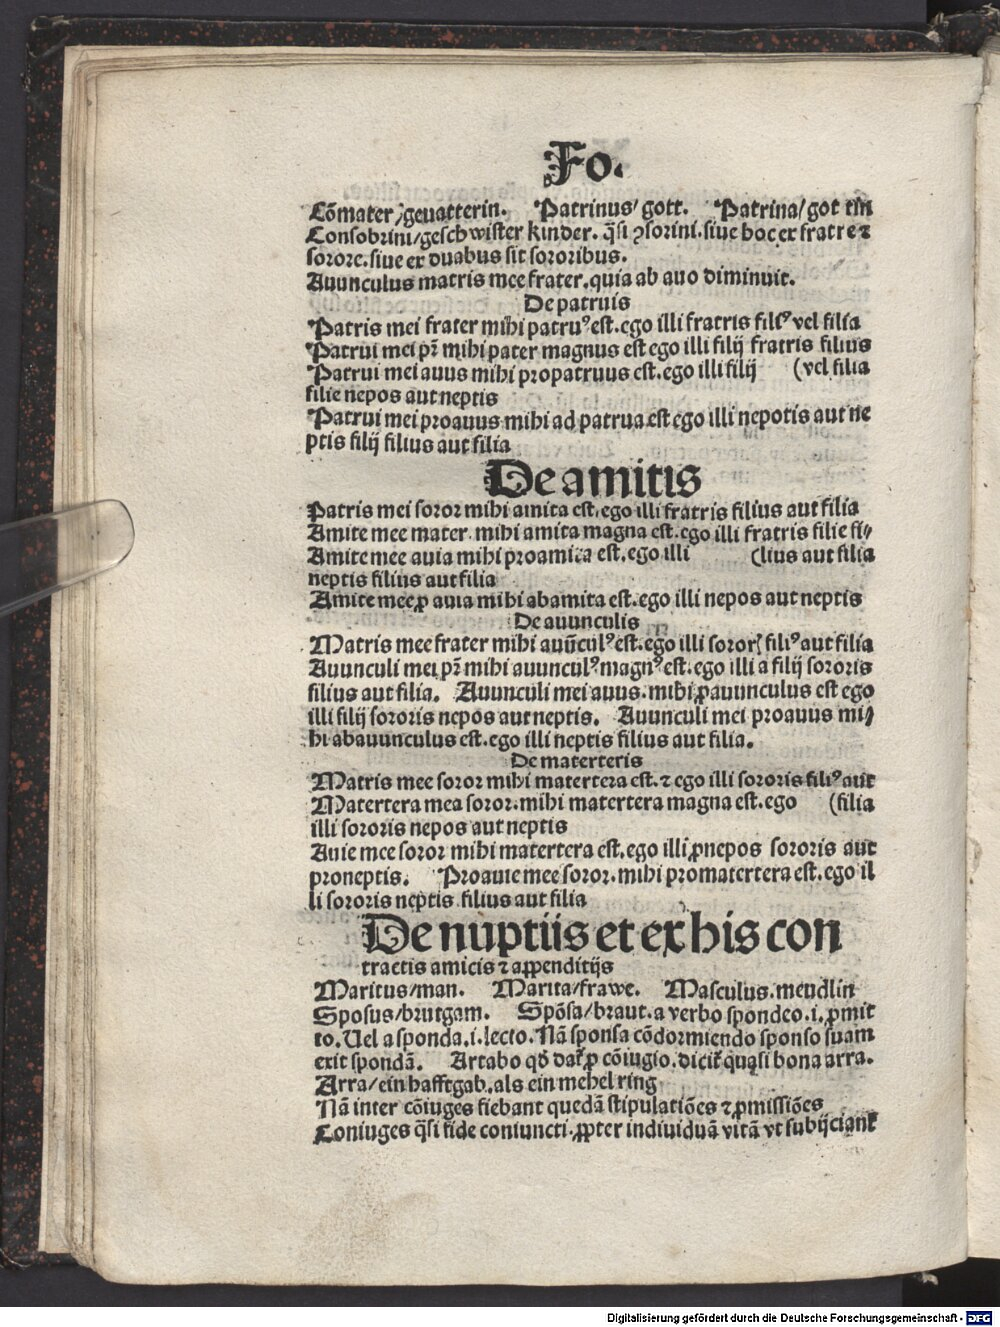 Fo.
Cõmater/geuatterin. Patrinus/gott. Patrina/got tin
Consobrini/geschwister kinder. q̃si ꝯsorini. siue hoc ex fratre ⁊
sorore. siue ex duabus sit sororibus.
Auunculus matris mee frater. quia ab auo diminuit.
De patruis
Patris mei frater mihi patruꝰ est. ego illi fratris filiꝰ vel filia
Patrui mei pr̃ mihi pater magnus est ego illi filij fratris filius
Patrui mei auus mihi propatruus est. ego illi filij (vel filia
filie nepos aut neptis
Patrui mei proauus mihi ad patrua est ego illi nepotis aut ne
ptis filij filius aut filia
De amitis
Patris mei soror mihi amita est. ego illi fratris filius aut filia
Amite mee mater. mihi amita magna est. ego illi fratris filie fi⸗
Amite mee auia mihi proamita est. ego illi (lius aut filia
neptis filius aut filia
Amite mee ꝓ auia mihi abamita est. ego illi nepos aut neptis
De auunculis
Matris mee frater mihi auũculꝰ est. ego illi sororꝭ filiꝰ aut filia
Auunculi mei pr̃ mihi auunculꝰ magnꝰ est. ego illi a filij sororis
filius aut filia. Auunculi mei auus. mihi ꝓauunculus est ego
illi filij sororis nepos aut neptis. Auunculi mei proauus mi⸗
hi abauunculus est. ego illi neptis filius aut filia.
De materteris
Matris mee soror mihi matertera est. ⁊ ego illi sororis filiꝰ aut
Matertera mea soror. mihi matertera magna est. ego (filia
illi sororis nepos aut neptis
Auie mee soror mihi matertera est. ego illi ꝓnepos sororis aut
proneptis. Proauie mee soror. mihi promatertera est. ego il
li sororis neptis filius aut filia
De nuptiis et ex his con
tractis amicis ⁊ appenditijs
Maritus/man. Marita/frawe. Masculus. mendlin
Sposus/brutgam. Spõsa/braut. a verbo spondeo. i. ꝓmit
to. Uel a sponda. i. lecto. Nã sponsa cõdormiendo sponso suam
exit spondã. Artabo qd̃ dat᷑ ꝓ cõiugio. dicit᷑ quasi bona arra.
Arra/ein hafftgab. als ein mehel ring
Nã inter cõiuges fiebant quedã stipulatiões ⁊ ꝓmissiões
Coniuges q̃si fide coniuncti. ꝓpter indiuiduã vitã vt subijciant᷑
Digitalisierung gefördert durch die Deutsche Forschungsgemeinschaft - DFG